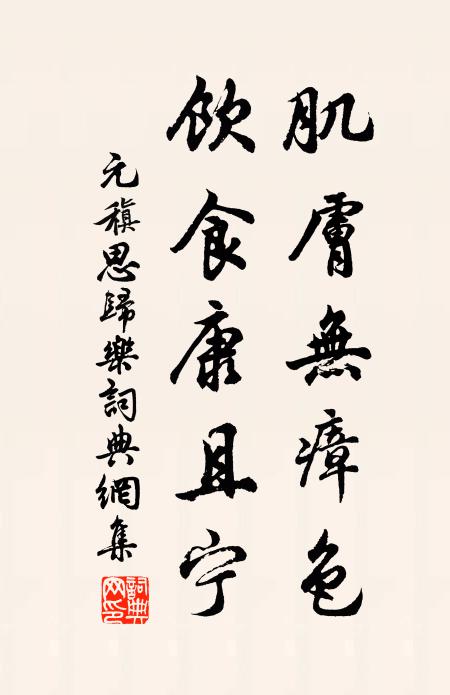 肌膚無瘴色
飲食康且宁
元稹思歸樂詞典網集
詞典網印